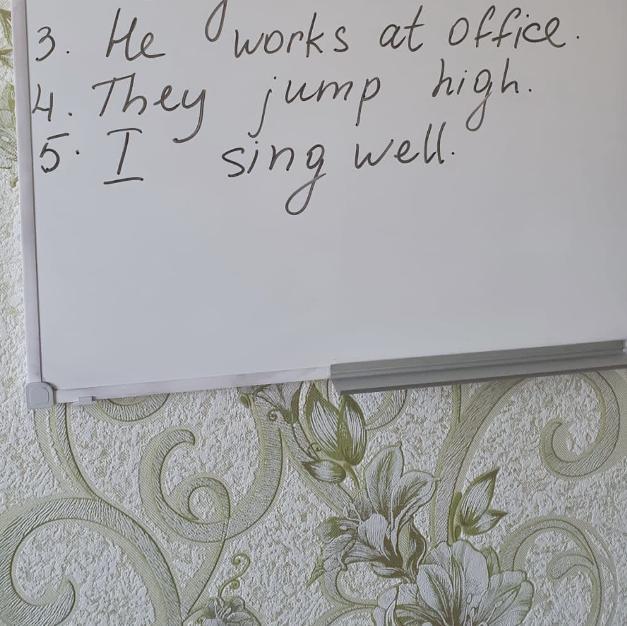 3. He works at office.
4. They jump high.
5. I sing well.